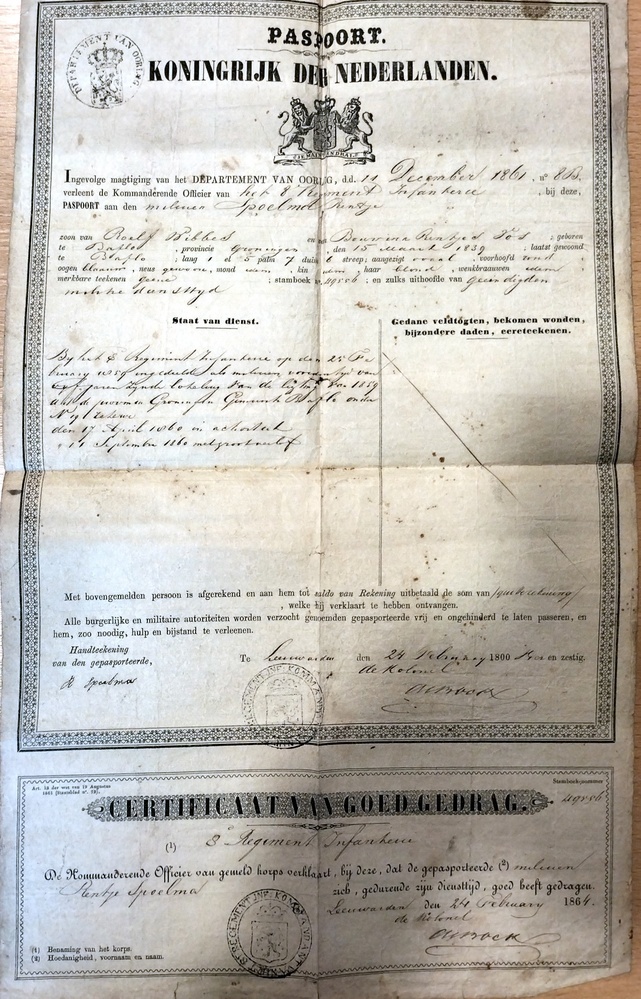 DEPARTEMENT VAN OORLOG
PASPOORT.
KONINGRIJK DER NEDERLANDEN.
JE MAINTIENDRAI
Ingevolge magtiging van het DEPARTEMENT VAN OORLOG, d.d. 11 December 1861, no 8B.
verleent de Kommanderende Officier van het 8e Regiment Infanterie, bij deze,
PASPOORT aan den milicien Spoelma Rentje
zoon van Roelf Wibbes en van Bouwina Rentjes Vos; geboren
te Baflo, provincie Groningen den 15 Maart 1839; laatst gewoond
te Baflo, lang 1 el 5 palm 7 duim 6 streep; aangezigt ovaal, voorhoofd rond
oogen blaauw, neus gewoon, mond idem, kin idem, haar blond, wenkbraauwen idem
merkbare teekenen geene; stamboek no 49556; en zulks uithoofde van geëindigden
diensttyd
Staat van dienst.
Gedane veldtogten, bekomen wonden,
bijzondere daden, eereteekenen.
By het 8e Regiment Infanterie op den 25 Fe
bruary 1859 ingedeeld als milicien voor den tyd van
jaren zynde loteling van de ligting van 1859
uit de provincie Groningen Gemeente Baflo onder
den 17 April 1860 in
11 September 1860 met groot verlof
Met bovengemelden persoon is afgerekend en aan hem tot saldo van Rekening uitbetaald de som van
, welke hij verklaart te hebben ontvangen.
Alle burgerlijke en militaire autoriteiten worden verzocht genoemden gepasporteerde vrij en ongehinderd te laten passeren, en
hem, zoo noodig, hulp en bijstand te verleenen.
Handteekening
van den gepasporteerde,
Te Leeuwarden den 24 February 1800 vier en zestig.
de Kolonel
R Spoelma
Art. 18 der wet van 19 Augustus
1861 (Staatsblad no. 72).
Stamboeknummer
49556
CERTIFICAAT VAN GOED GEDRAG.
(1) 8e Regiment Infanterie
De Kommanderende Officier van gemeld korps verklaart, bij deze, dat de gepasporteerde (2) milicien
Rentje Spoelma zich, gedurende zijn diensttijd, goed heeft gedragen.
Leeuwarden den 24 February 1864.
de Kolonel
(1) Benaming van het korps.
(2) Hoedanigheid, voornaam en naam.